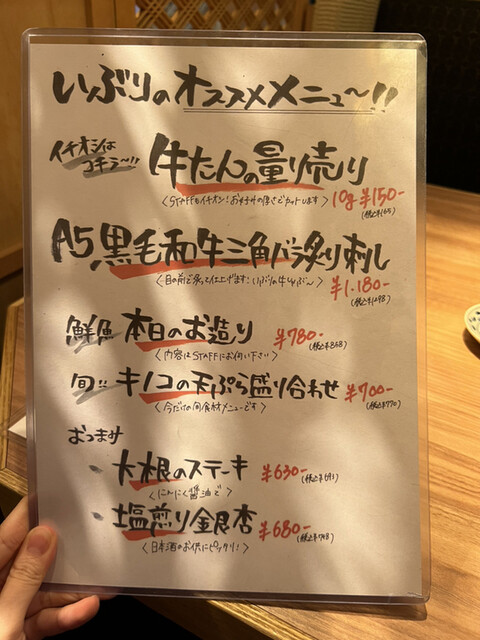 いぶりのオススメメニュ〜!!
イチオシは
コチラ〜!!
牛たんの量り売り
〈STAFFもイチオシ!お好みの厚さでカットします〉
10g ¥150-
(税込¥165)
A5黒毛和牛三角バラ炙り刺し
〈目の前で炙って仕上げます!いぶりの牛いぶし〜〉
¥1.180-
(税込¥1298)
鮮魚 本日のお造り ¥780-
(税込¥858)
〈内容はSTAFFにお伺い下さい〉
旬!! キノコの天ぷら盛り合わせ ¥700-
(税込¥770)
〈今だけの旬食材メニューです〉
おつまみ
・大根のステーキ ¥630- (税込¥693)
〈にんにく醤油で〉
・塩煎り銀杏 ¥680-
(税込¥748)
〈日本酒のお供にピッタリ!〉